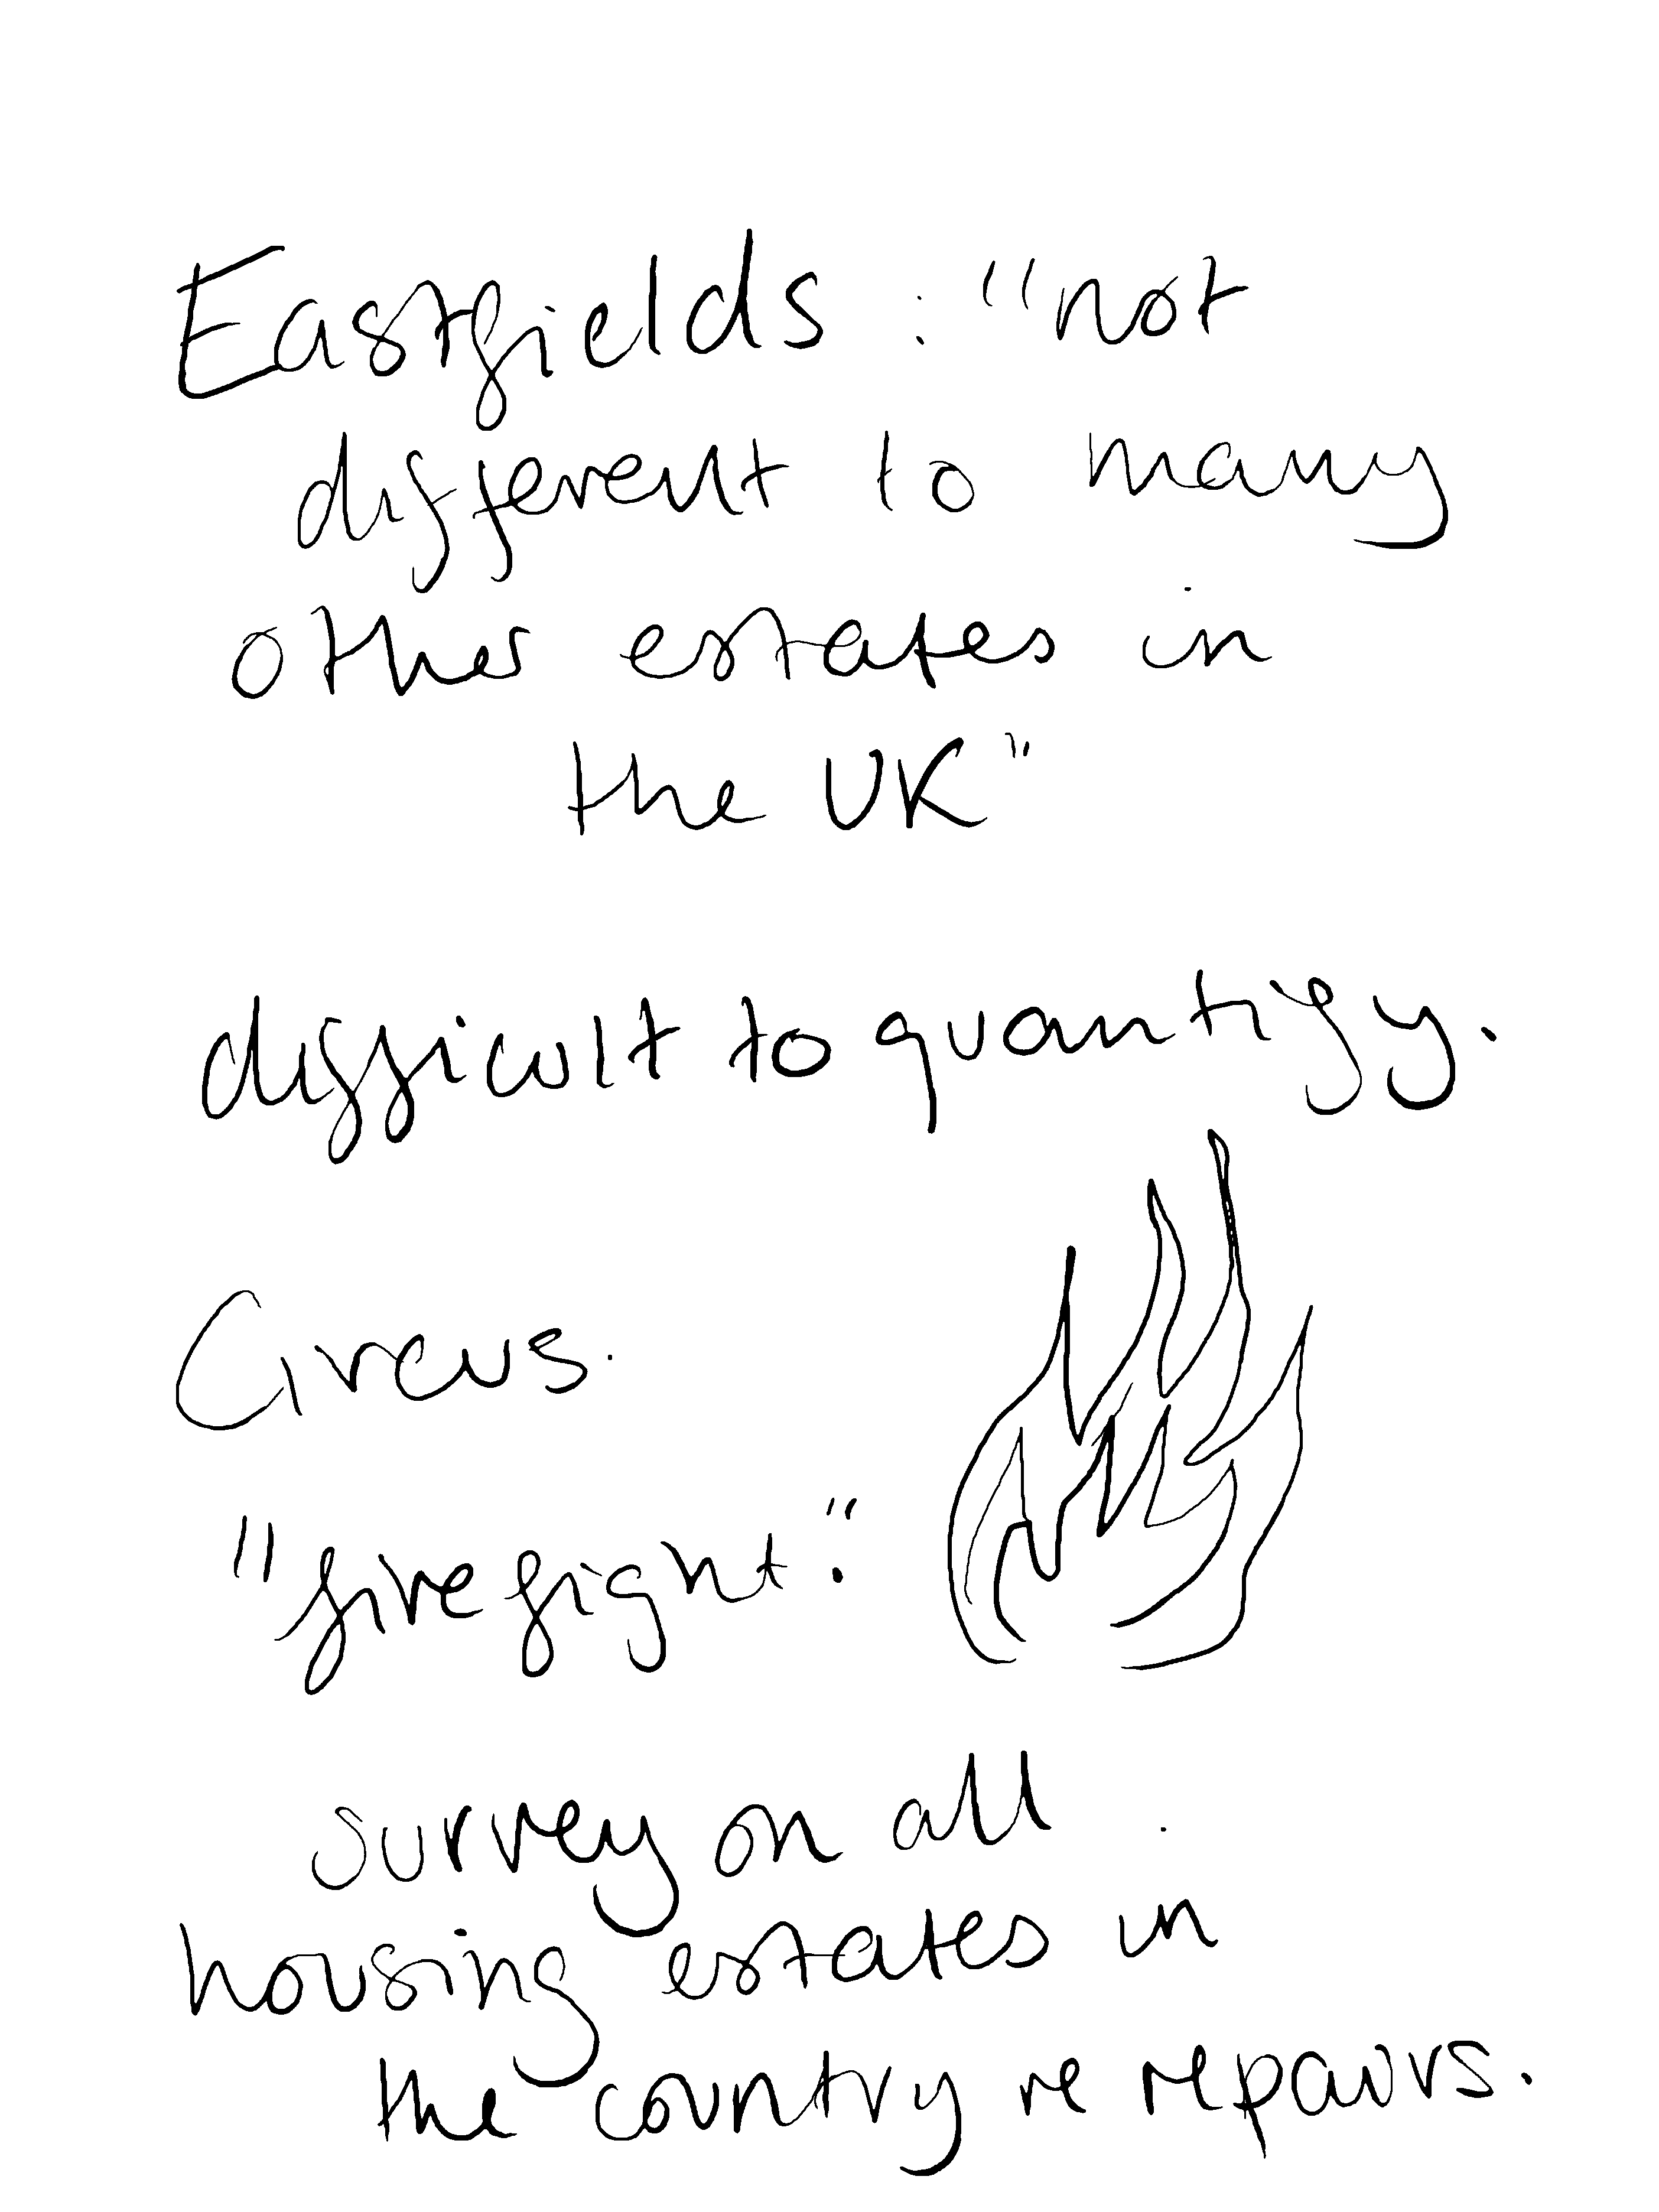 Eastfields : "not
different to many
other estates in
the UK"
difficult to quantify.
Circus.
"firefight":
survey on all
housing estates in
the country re repairs.